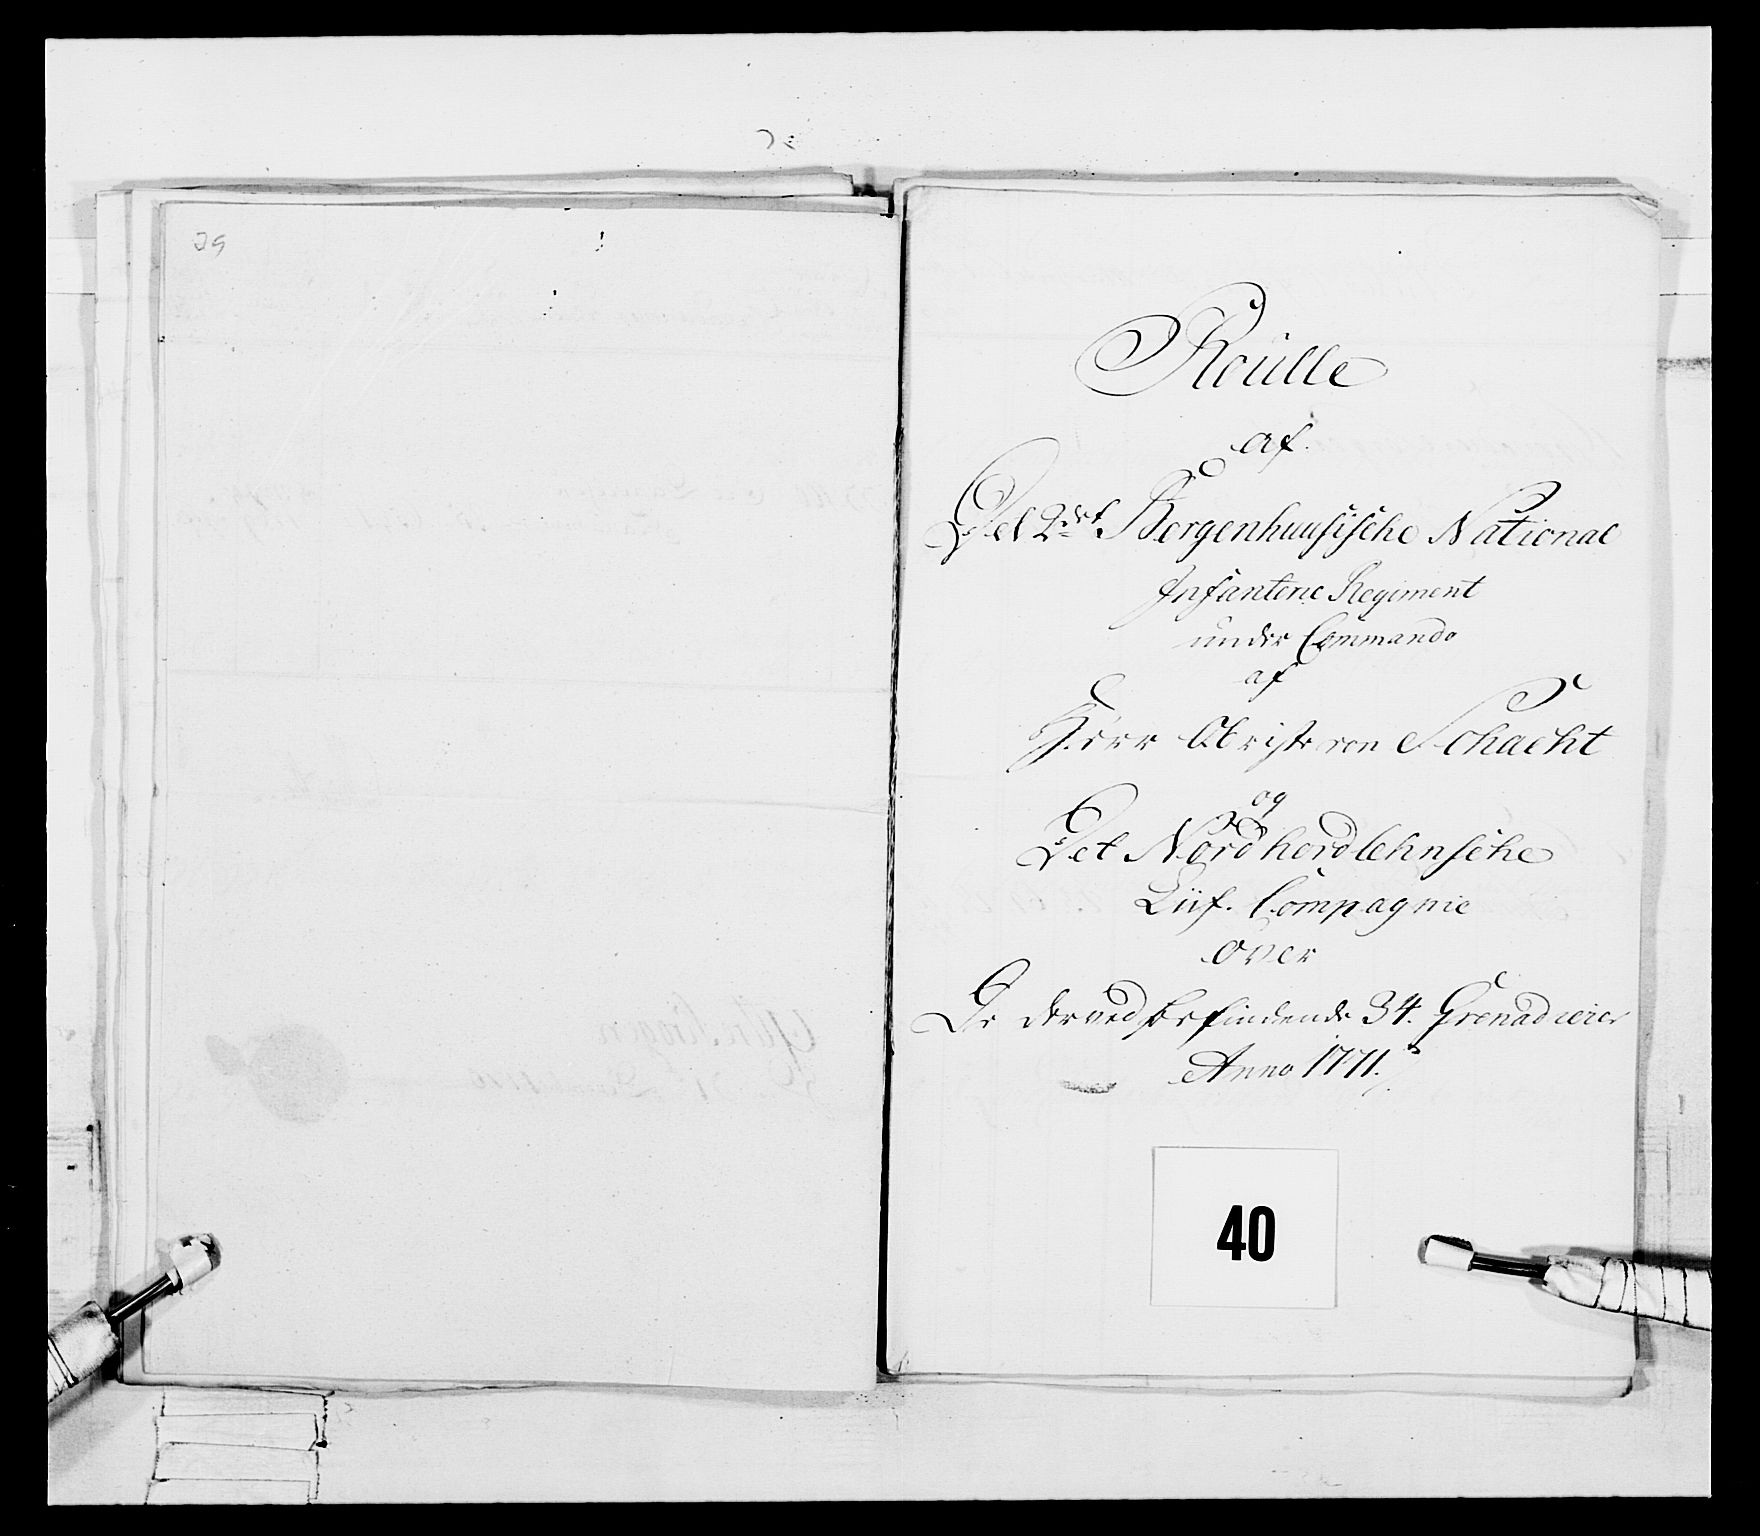 Roulle
af
Det 2det Bergenhuusische National
Infanterie Regiment
under Commando
af
Herr Obriste von Schacht
og
Det Nordhordlehnsche
Liif. Compagnie
over
De derved befindende 34. Grenadierer
Anno 1771.
40